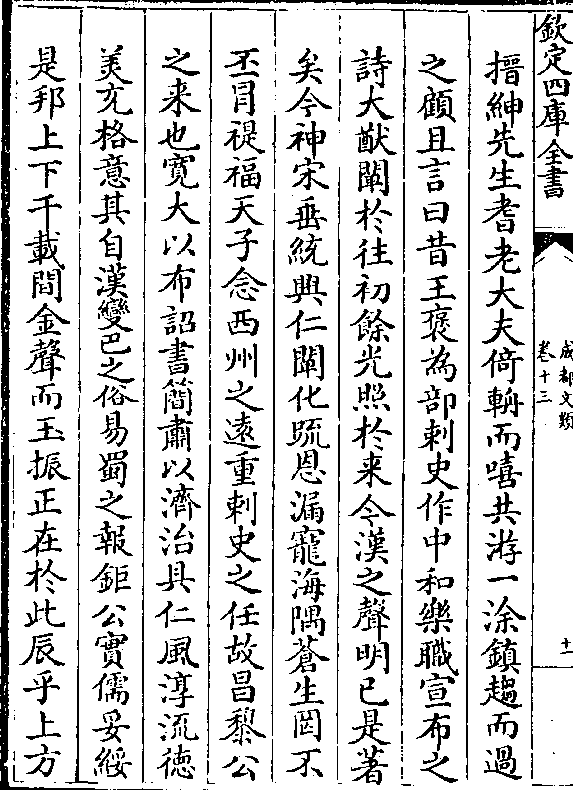 欽定四庫全書
成都文類
卷十三
十一
搢紳先生耆老大夫倚輈而嘻共游一涂鎮趨而過
之顧且言曰昔王褒為部刺史作中和樂職宣布之
詩大猷闡於往初餘光照於来今漢之聲明已是著
矣今神宋垂統興仁闡化疏恩漏寵海隅蒼生罔不
丕冐禔福天子念西州之遠重刺史之任故昌黎公
之来也寛大以布詔書簡肅以濟治具仁風淳流徳
美充格意其自漢變巴之俗易蜀之報鉅公實儒妥綏
是邦上下千載間金聲而玉振正在於此辰乎上方